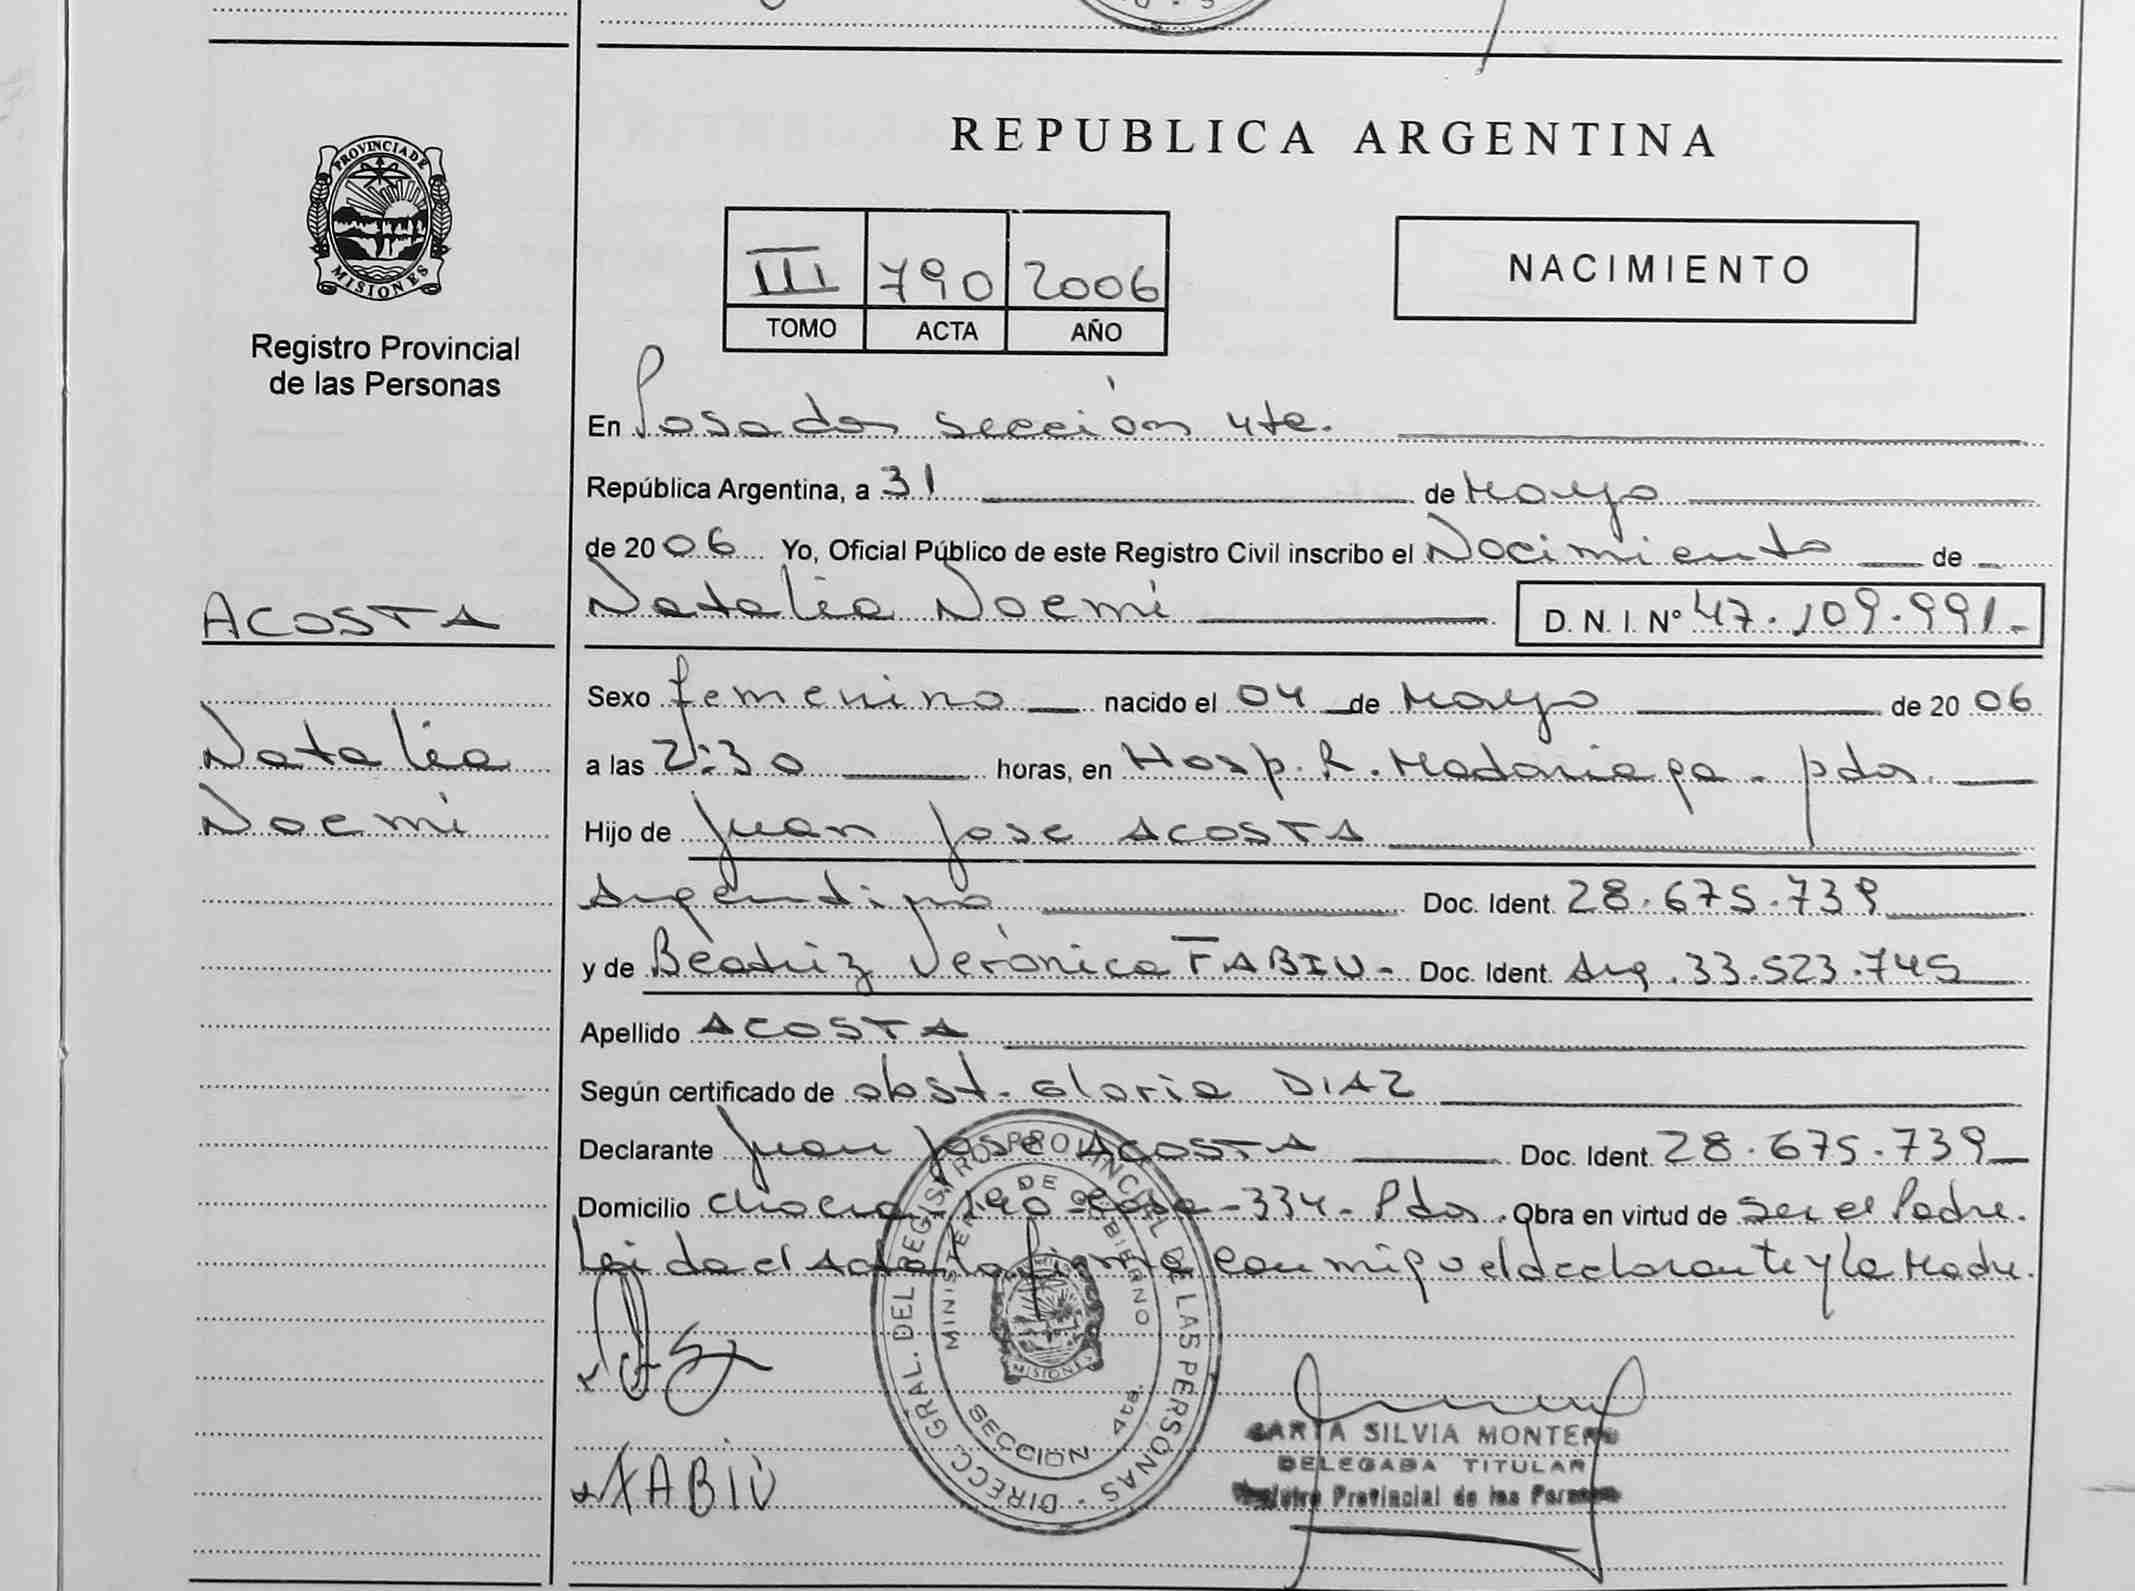 REPUBLICA ARGENTINA
PROVINCIA DE
MISIONES
Registro Provincial
de las Personas
III 790 2006
TOMO ACTA AÑO
NACIMIENTO
En Posadas sección 4ta.
República Argentina, a 31 de Mayo
de 2006 Yo, Oficial Público de este Registro Civil inscribo el Nacimiento de
ACOSTA
Natalia Noemi D. N. I. Nº 47.109.991.-
Sexo femenino nacido el 04 de Mayo de 2006
Natalia
a las 2:30 horas, en Hosp. R. Madariaga - pdas.
Noemi
Hijo de Juan Jose ACOSTA
Argentino Doc. Ident. 28.675.739
y de Beatriz Verónica FABIU - Doc. Ident. Arg. 33.523.745
Apellido ACOSTA
Según certificado de obst. Gloria DIAZ
Declarante Juan Jose ACOSTA Doc. Ident. 28.675.739
Domicilio chacra 190 casa - 334 - Pdas. Obra en virtud de ser el Padre.
Leida el Acta la firma conmigo el declarante y la Madre.
DIRECC. GRAL. DEL REGISTRO PROVINCIAL DE LAS PERSONAS
MINISTERIO DE GOBIERNO
MISIONES
SECCION 4ta.
SILVIA MONTERO
DELEGADA TITULAR
Registro Provincial de las Personas
FABIU